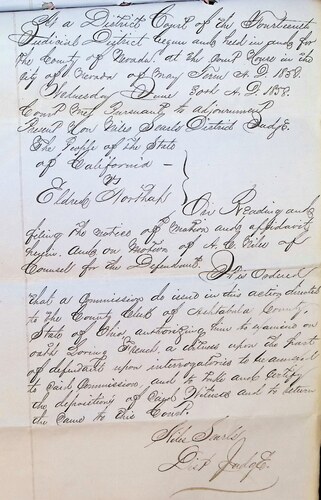 At a District Court of the Fourteenth
Judicial District begun and held in and for
the County of Nevada, at the Court House in the
City of Nevada of May Term A.D. 1858.
Wednesday June 30th A.D. 1858.
Court Met Pursuant to adjournment
Present Hon Niles Searls District Judge.
The People of the State
of California –
vs
Eldred Northup
On Reading and
filing the notice of Motion and affidavit
herein. and on Motion of A.C. Niles of
Counsel for the Defendant. It is Ordered
that a Commission do issue in this action directed
to the County Clerk of Ashtabula County,
State of Ohio, authorizing him to examine on
oath Loring French, a witness upon the part
of defendant upon interrogatories to be annexed
to said Commission, and to take and Certify
the deposition of said Witness and to return
the same to this Court.
Niles Searls
Dist Judge.